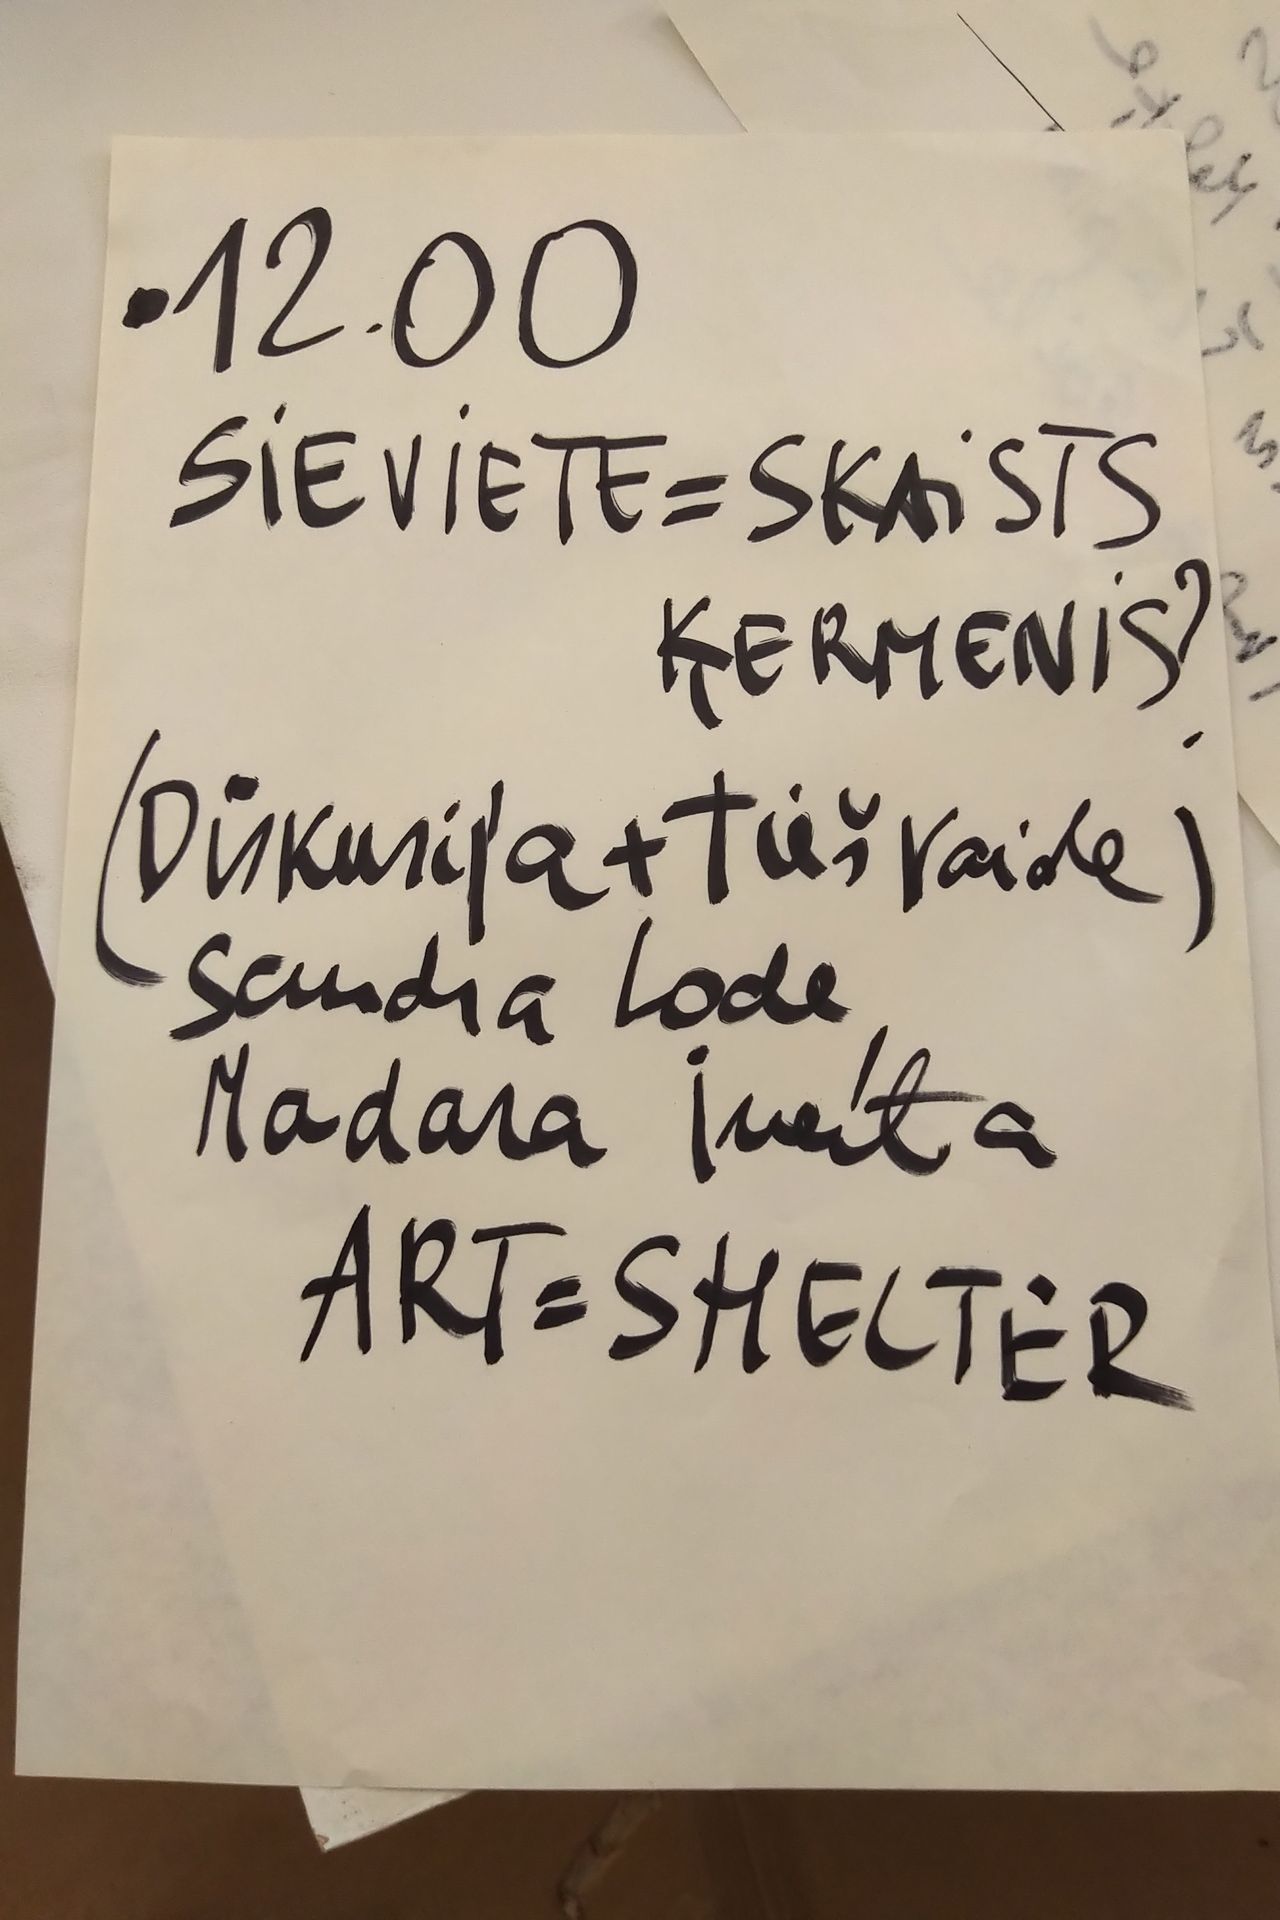 • 12.00
SIEVIETE = SKAISTS
ĶERMENIS?
(Diskusija + Tiešraide)
Sandra Lode
Madara
ART = SHELTER